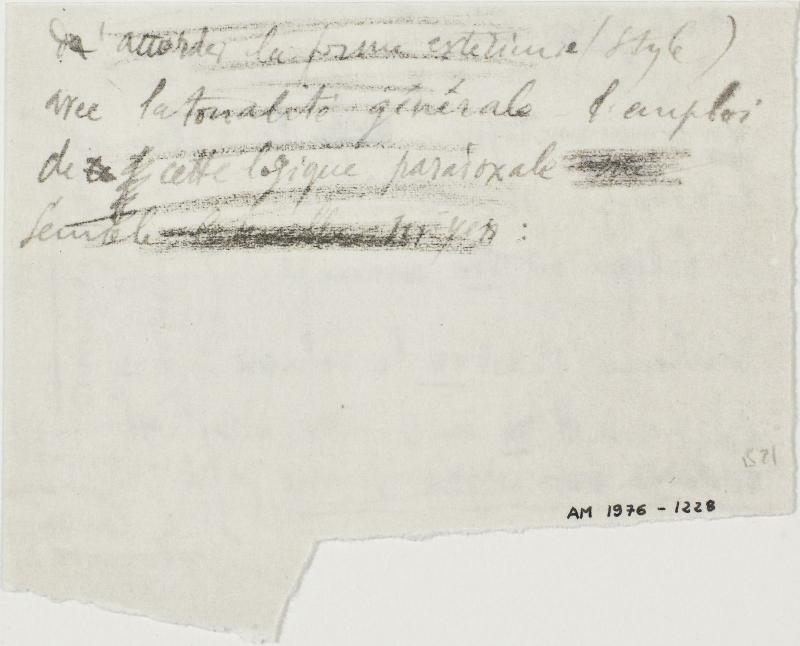 d'accorder la forme extérieure (style)
avec la tonalité générale l'emploi
de cette logique paradoxale
semble moyen :
1521
AM 1976 - 1228